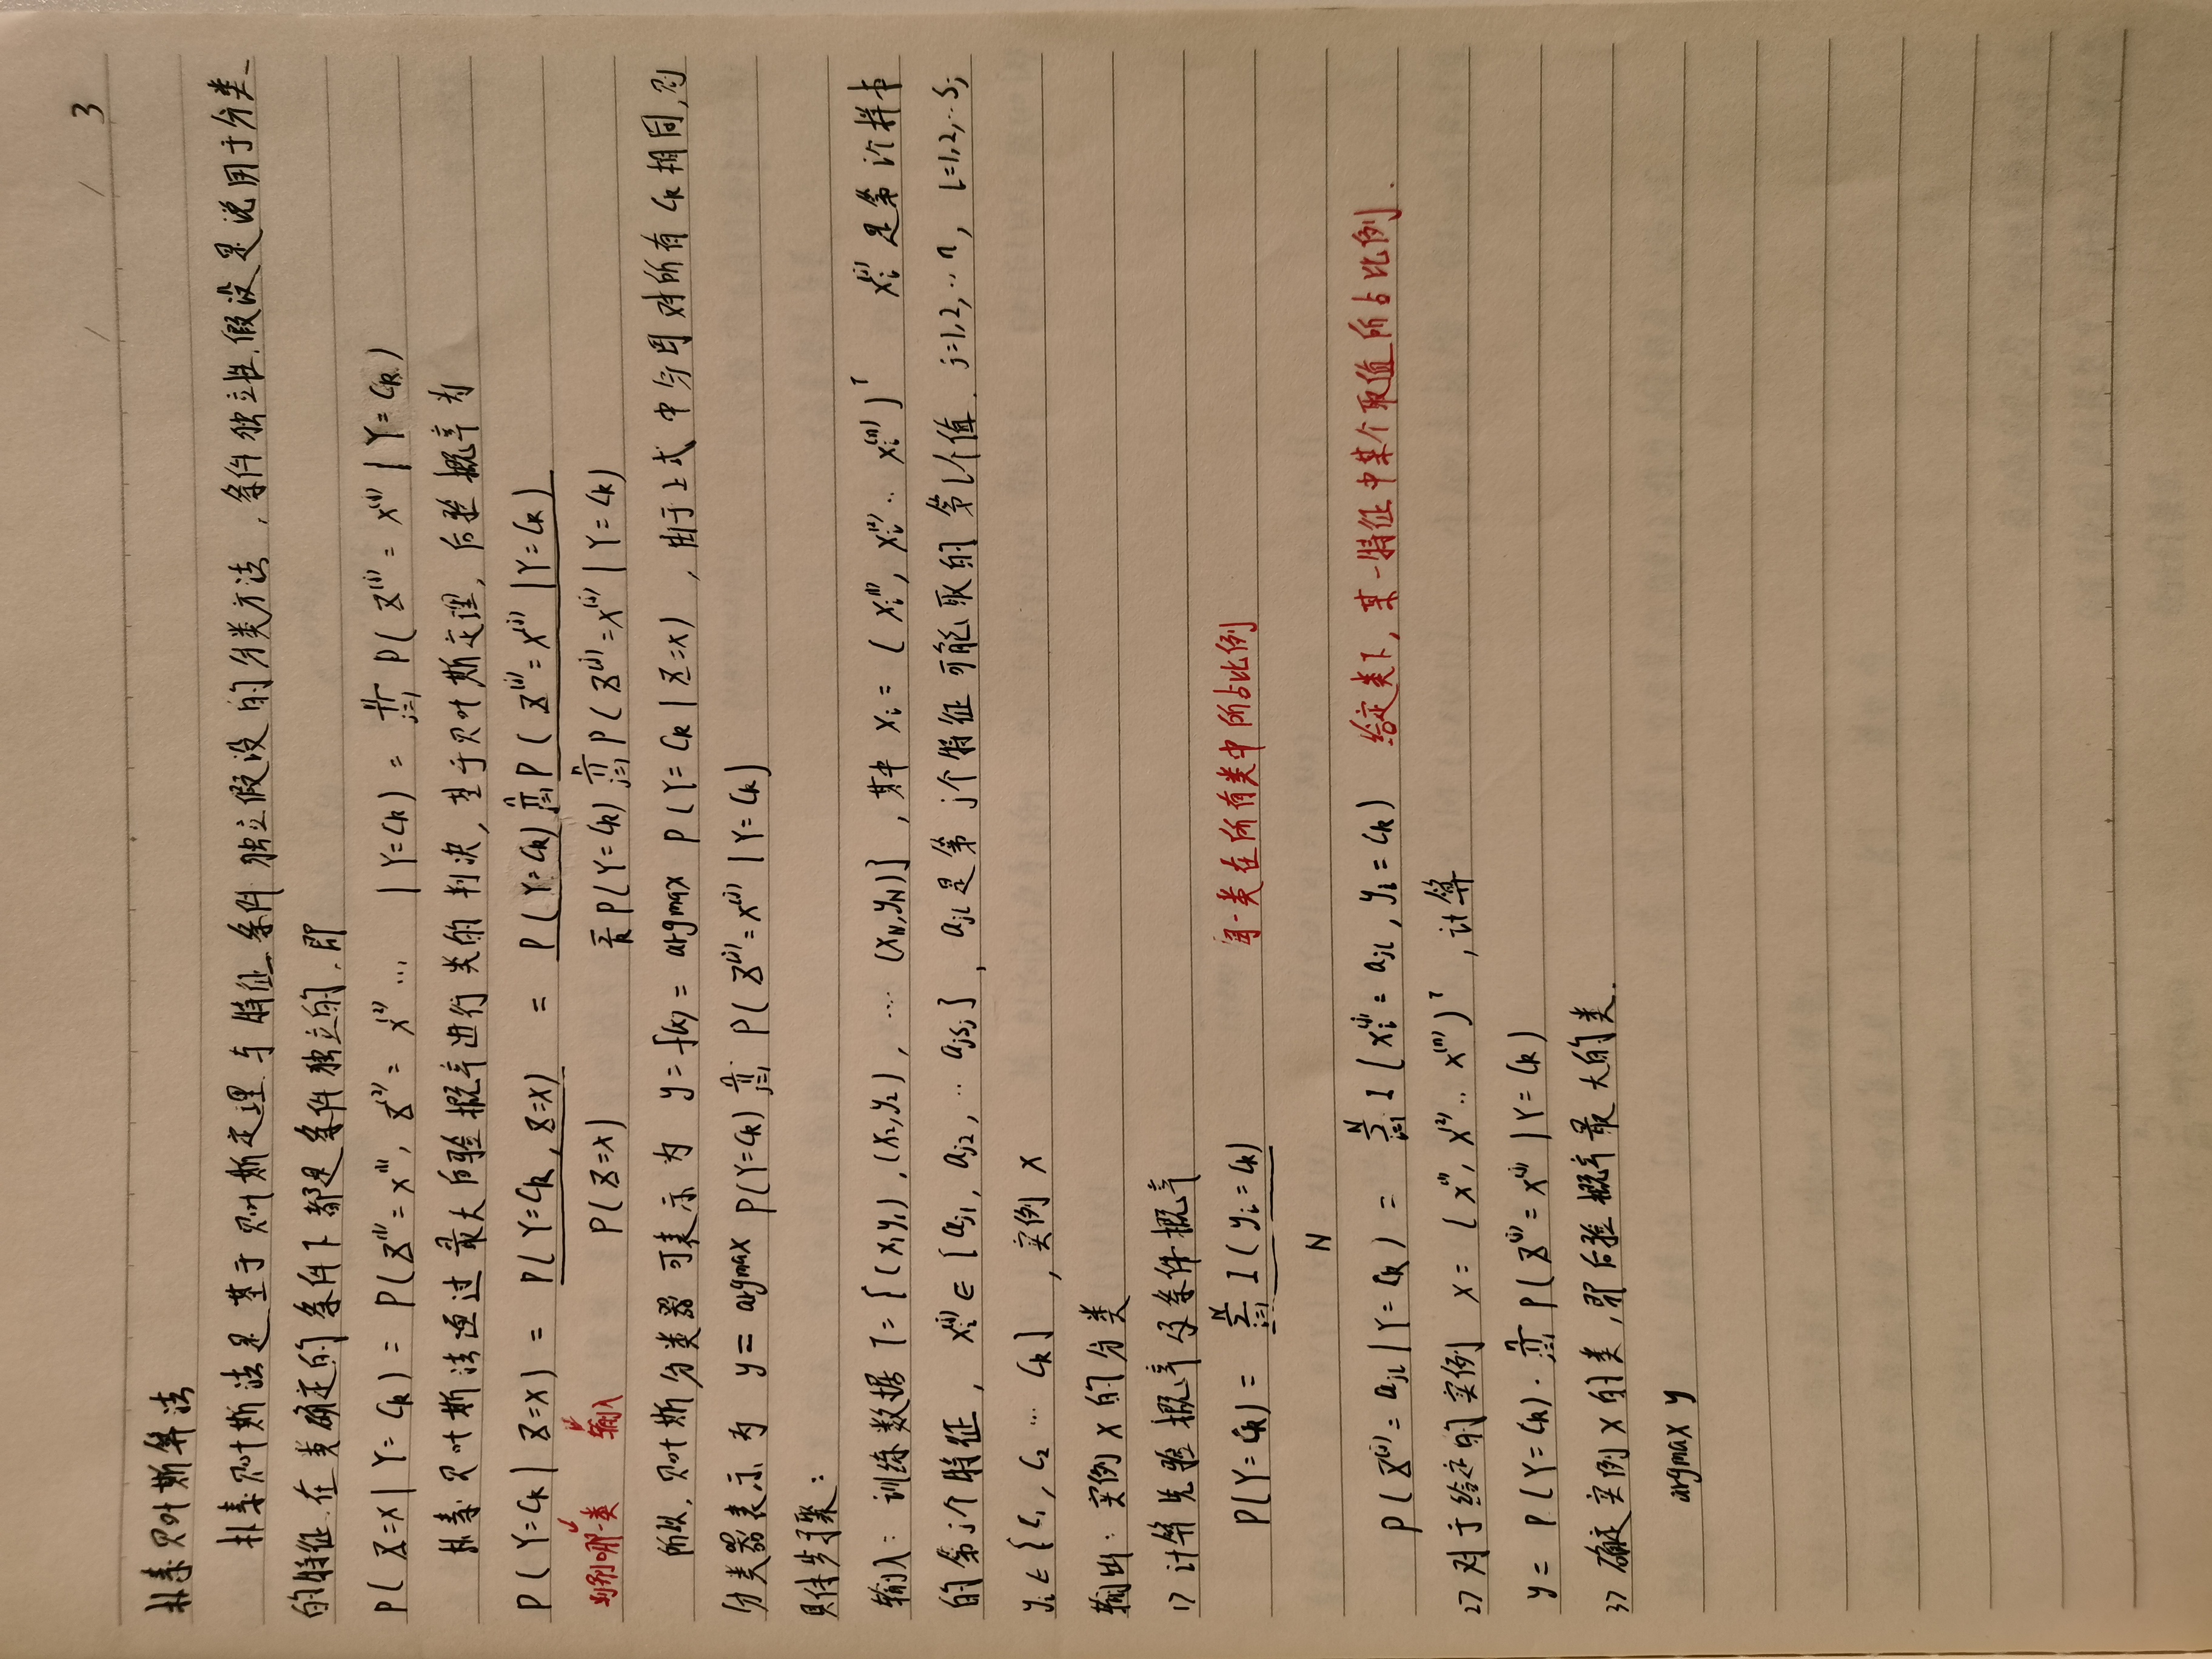 3
朴素贝叶斯算法
朴素贝叶斯法是基于贝叶斯定理与特征条件独立假设的分类方法,条件独立性假设是说用于分类
的特征在类确定的条件下都是条件独立的,即
P(X=x|Y=Ck) = P(X⁽¹⁾=x⁽¹⁾, X⁽²⁾=x⁽²⁾ ... |Y=Ck) = ∏ⁿⱼ₌₁ P(X⁽ʲ⁾=x⁽ʲ⁾|Y=Ck)
朴素贝叶斯法通过最大后验概率进行类的判决,基于贝叶斯定理,后验概率为
P(Y=Ck|X=x) = P(Y=Ck,X=x) = P(Y=Ck)∏ⁿⱼ₌₁P(X⁽ʲ⁾=x⁽ʲ⁾|Y=Ck)
判别哪一类 输入 P(X=x) ∑k P(Y=Ck)∏ⁿⱼ₌₁P(X⁽ʲ⁾=x⁽ʲ⁾|Y=Ck)
所以,贝叶斯分类器可表示为 y=f(x)=argmax P(Y=Ck|X=x),由于上式中分母对所有Ck相同,则
分类器表示为 y= argmax P(Y=Ck)∏ⁿⱼ₌₁ P(X⁽ʲ⁾=x⁽ʲ⁾|Y=Ck)
具体步骤:
输入: 训练数据 T={(x₁,y₁),(x₂,y₂), ... (xN,yN)},其中 xᵢ=(xᵢ⁽¹⁾, xᵢ⁽²⁾.. xᵢ⁽ⁿ⁾)ᵀ xᵢ⁽ʲ⁾是第i个样本
的第j个特征, xᵢ⁽ʲ⁾∈{aj1, aj2, .. ajSj}, ajl是第j个特征可能取的第l个值. j=1,2,...n, l=1,2,...Sj
yᵢ∈{C₁, C₂ ... Ck},实例x
输出: 实例x的分类
1> 计算先验概率及条件概率
P(Y=Ck) = ∑ᴺᵢ₌₁ I(yᵢ=Ck) 每一类在所有类中所占比例
N
P(X⁽ʲ⁾=ajl|Y=Ck) = ∑ᴺᵢ₌₁ I(xᵢ⁽ʲ⁾=ajl, yᵢ=Ck) 给定类下,某一特征中某个取值所占比例.
2> 对于给定的实例 x=(x⁽¹⁾, x⁽²⁾.. x⁽ⁿ⁾)ᵀ,计算
y= P(Y=Ck)·∏ⁿⱼ₌₁ P(X⁽ʲ⁾=x⁽ʲ⁾|Y=Ck)
3> 确定实例x的类,即后验概率最大的类.
argmax y